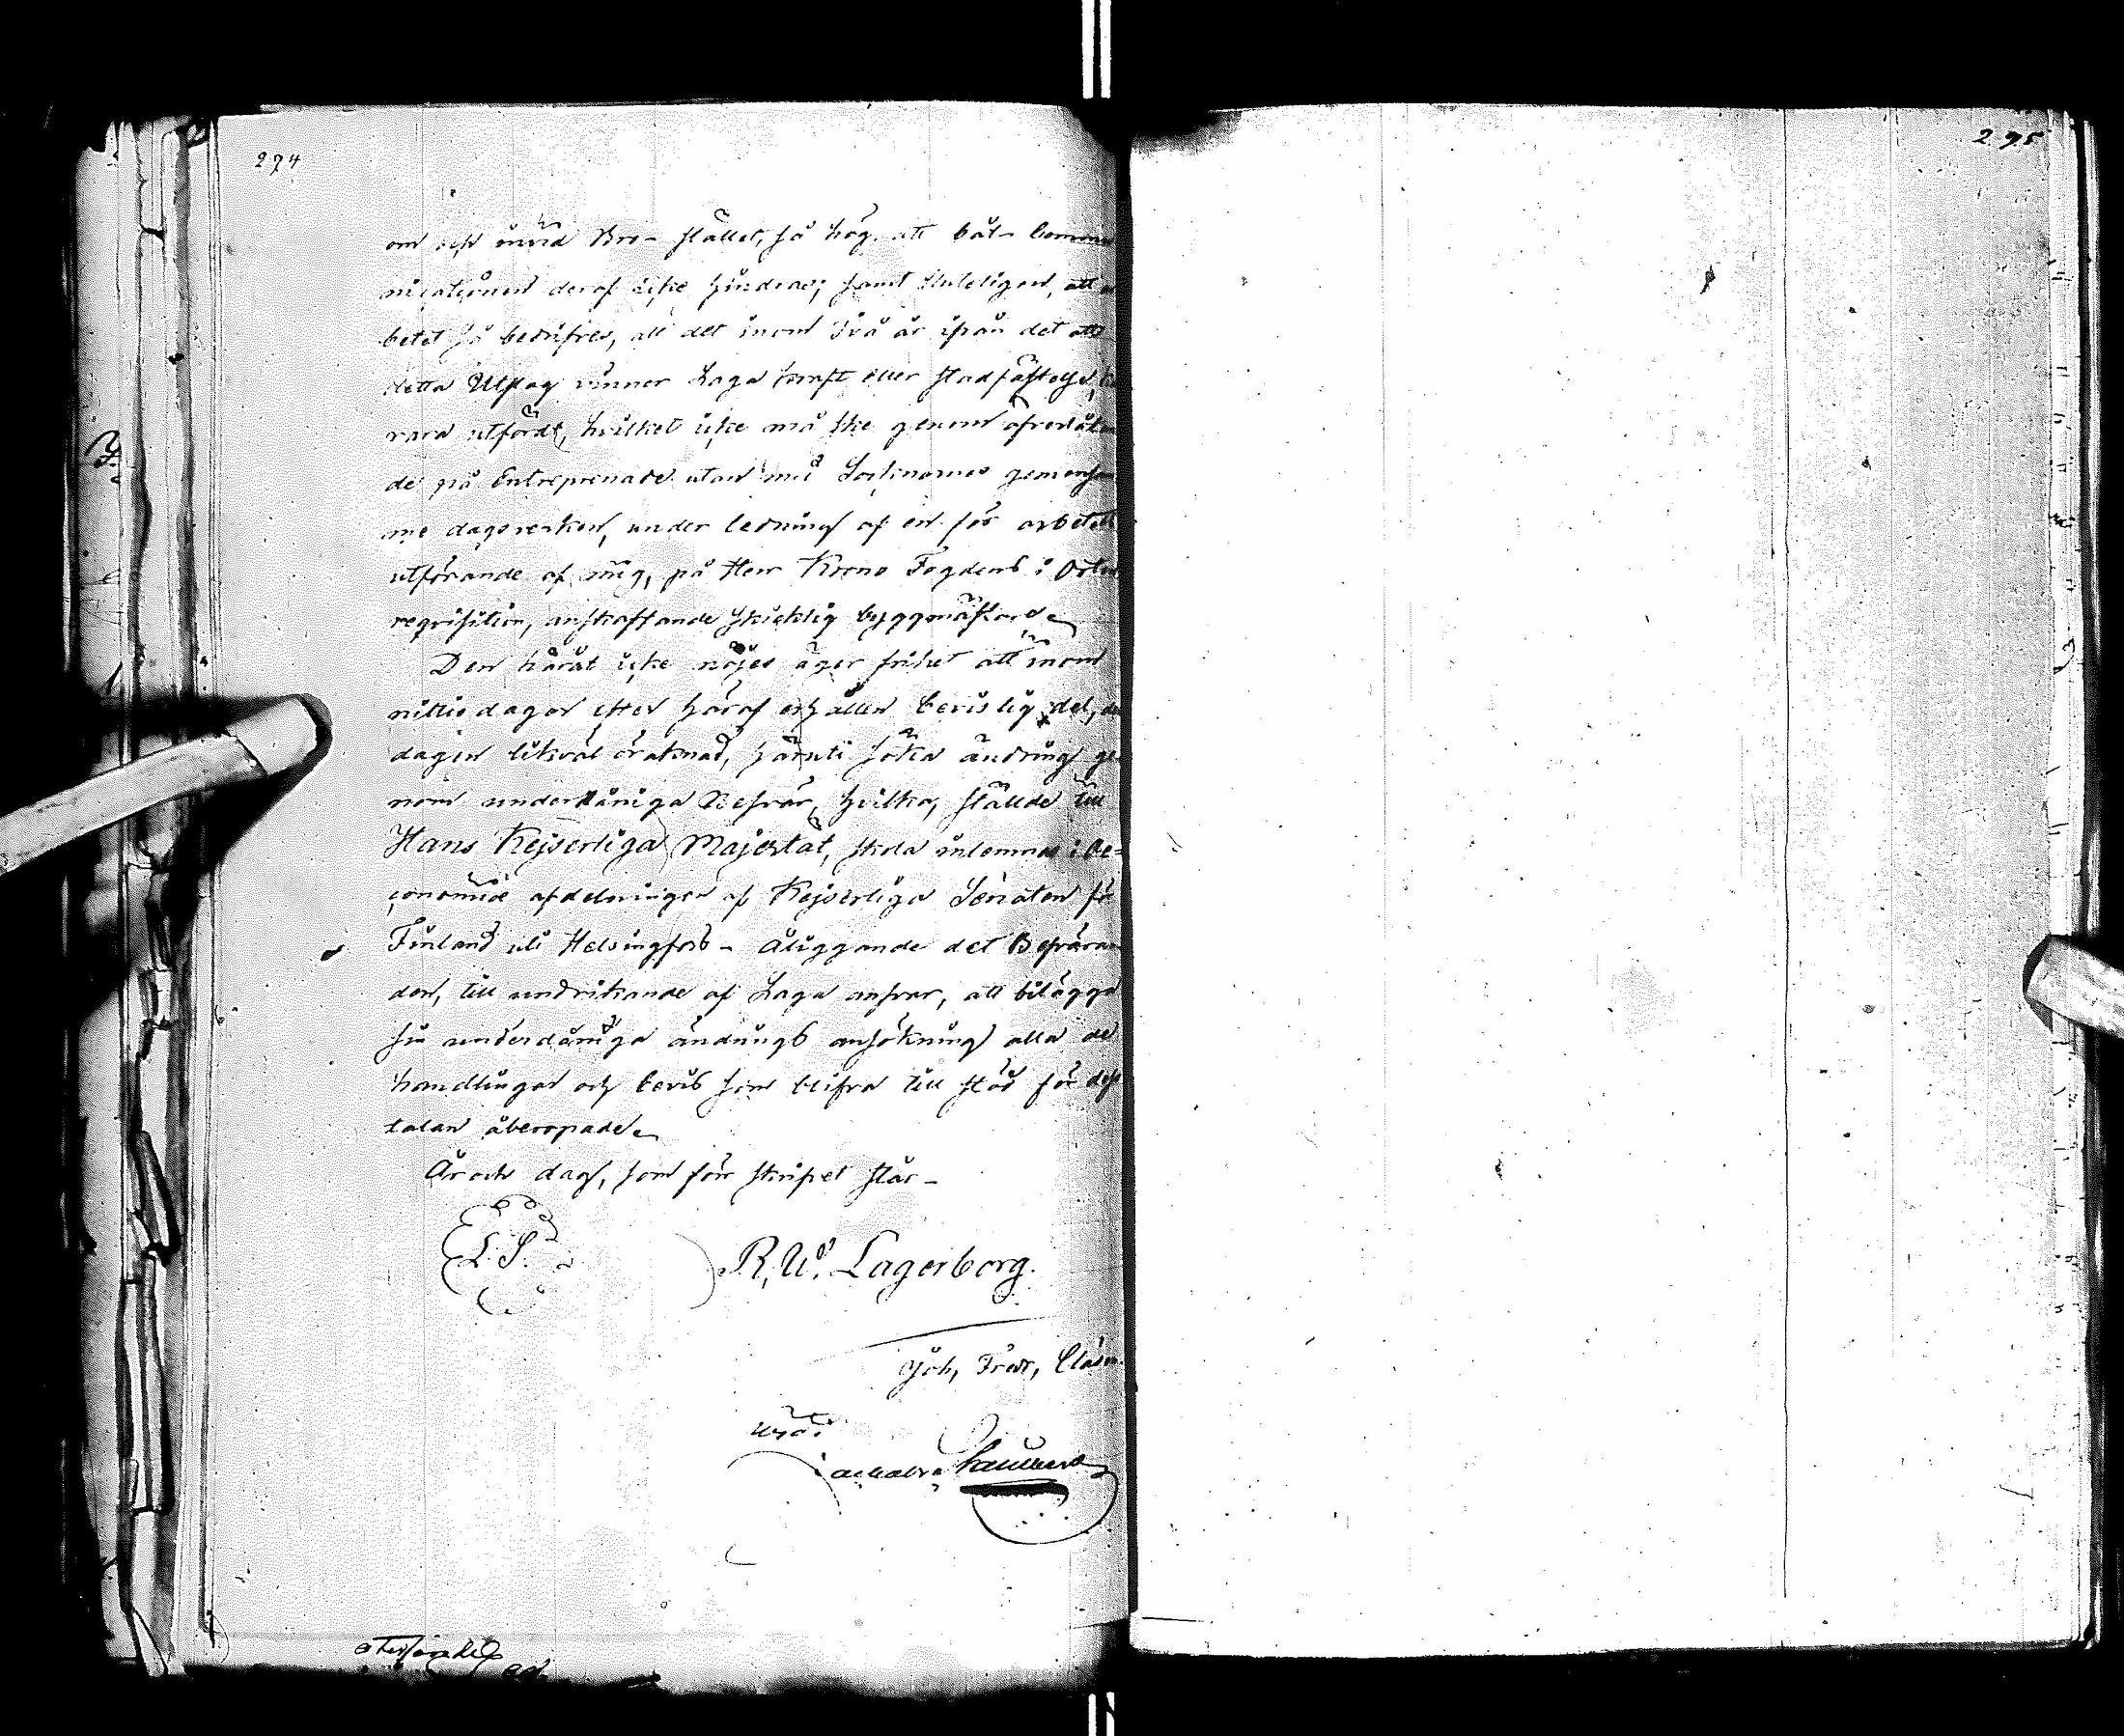 274
295
om och invid Bro- stället, så hög, att båt- commu
nicationen deraf icke hindras; samt slutligen, att ar
betet så bedrifves, att det inom två år ifrån det att
detta Utslag vinner Laga kraft eller stadfästelse,
vara utfördt, hvilket icke må ske genom öfverlåtan
de på Entreprenade utan med Socknarnes gemensam
me dagsverken, under ledning af en för arbetets
utförande af mig, på Herr Krono Fogdens i Orten
reqvisition, anskaffande skicklig byggmästare
Den häråt icke nöjes äger frihet att inom
nittio dagar efter häraf erhållen bevislig del, den
dagen likväl oräknad, häruti söka ändring ge
nom underdåniga Besvär, hvilka, stälde till
Hans Kejserliga Majestät, skola inlemnas i Oe-
conomie afdelningen af Kejserliga Senaten för
Finland uti Helsingfors- Åliggande det Besvären
den, till undvikande af Laga ansvar, att bilägga
sin underdåniga ändrings ansökning alla de
handlingar och bevis som blifva till stöd för dess
talan åberopade
År och dag, som förr skrifvet står-
L. S.
R, W. Lagerborg.
Joh, Fredr,